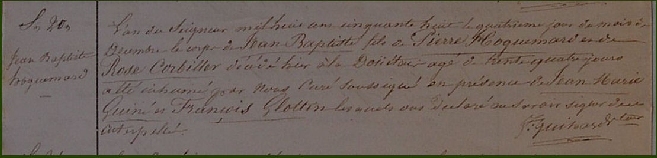 S. 20e
Jean Baptiste
hoquemard
L'an du Seigneur mil huit cent cinquante huit le quatrième jour du mois de
le corps de Jean Baptiste fils de Pierre Hoquemard et de
Rose Corbillet décédé hier à la agé de trente quatre jours
a été inhumé par Nous Curé soussigné en présence de Jean Marie
et François Glotton lesquels ont déclaré ne savoir signer de ce
interpellé.